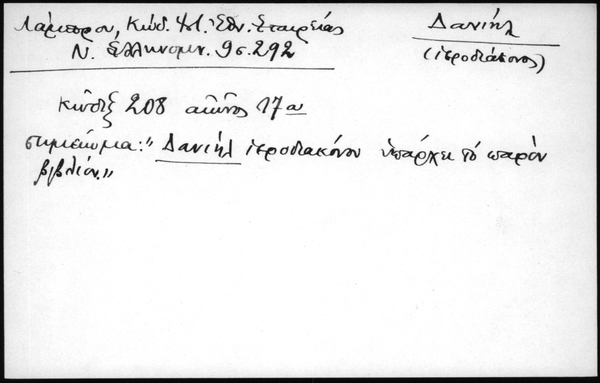 Λάμπρου, Κώδ. Ἱστ. Ἐθν. Ἑταιρείας
Ν. Ἑλληνομν. 9 σ. 292
Δανιήλ
(ἱεροδιάκονος)
Κῶδιξ 208 αἰῶνος 17 α
σημείωμα: „Δανιήλ ἱεροδιακόνου ὑπάρχει τὸ παρὸν
βιβλίον."